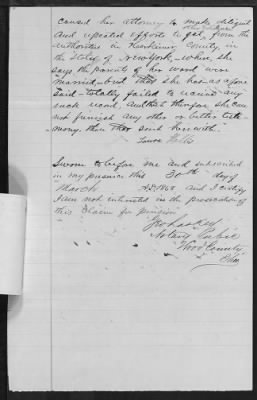 caused her attorney to make diligent
and repeated efforts to get, from the
authorities in Herkimer County, in
the State of New York, where she
says the parents of her ward were
married, but that she has, as afore
said, totally failed to receive any
such record, and that therefore she can
not furnish any other or better testi-
mony than that sent herewith.
Sworn to before me and subscribed
in my presence this 30th day of
March AD 1868 and I certify
I am not interested in the prosecution of
this claim for pension
Notary Public
Wood County
Ohio